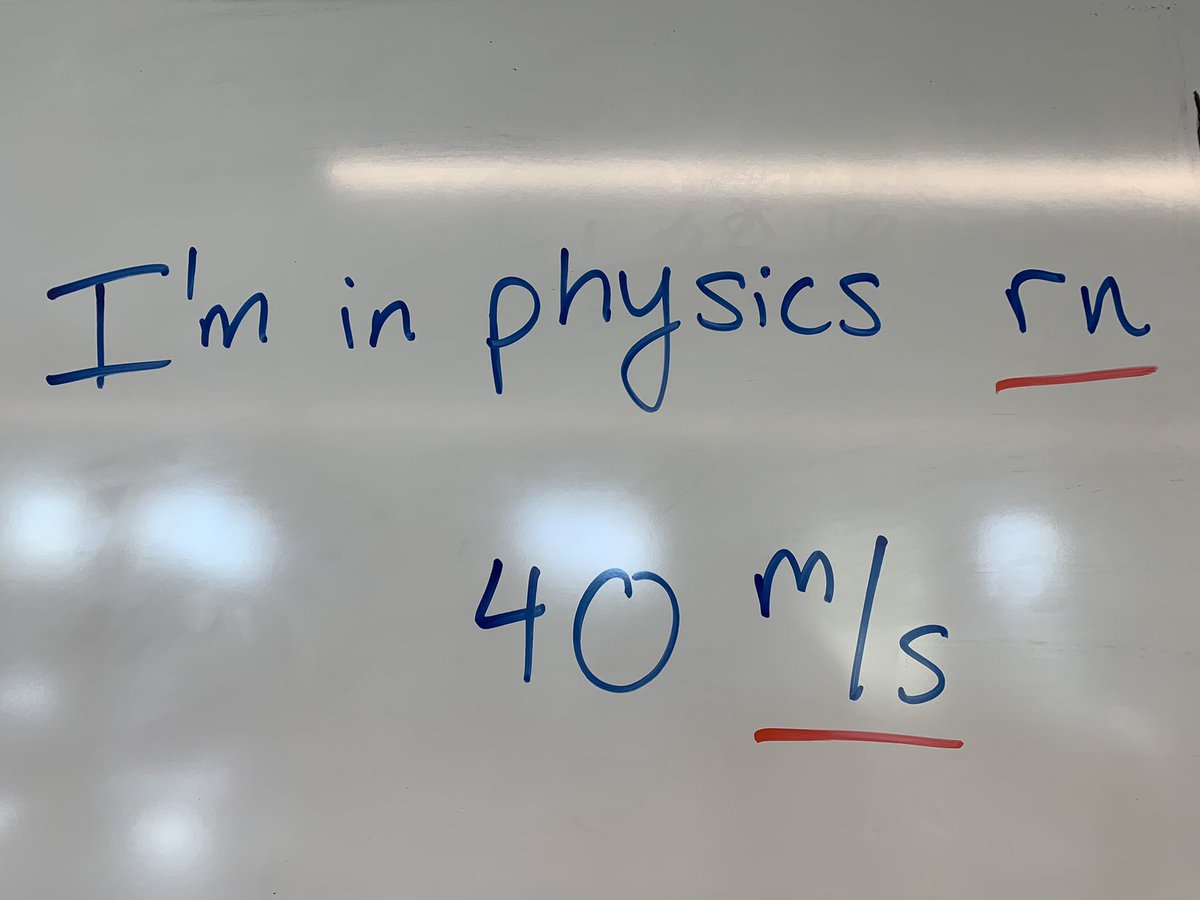 I'm in physics rn
40 m/s